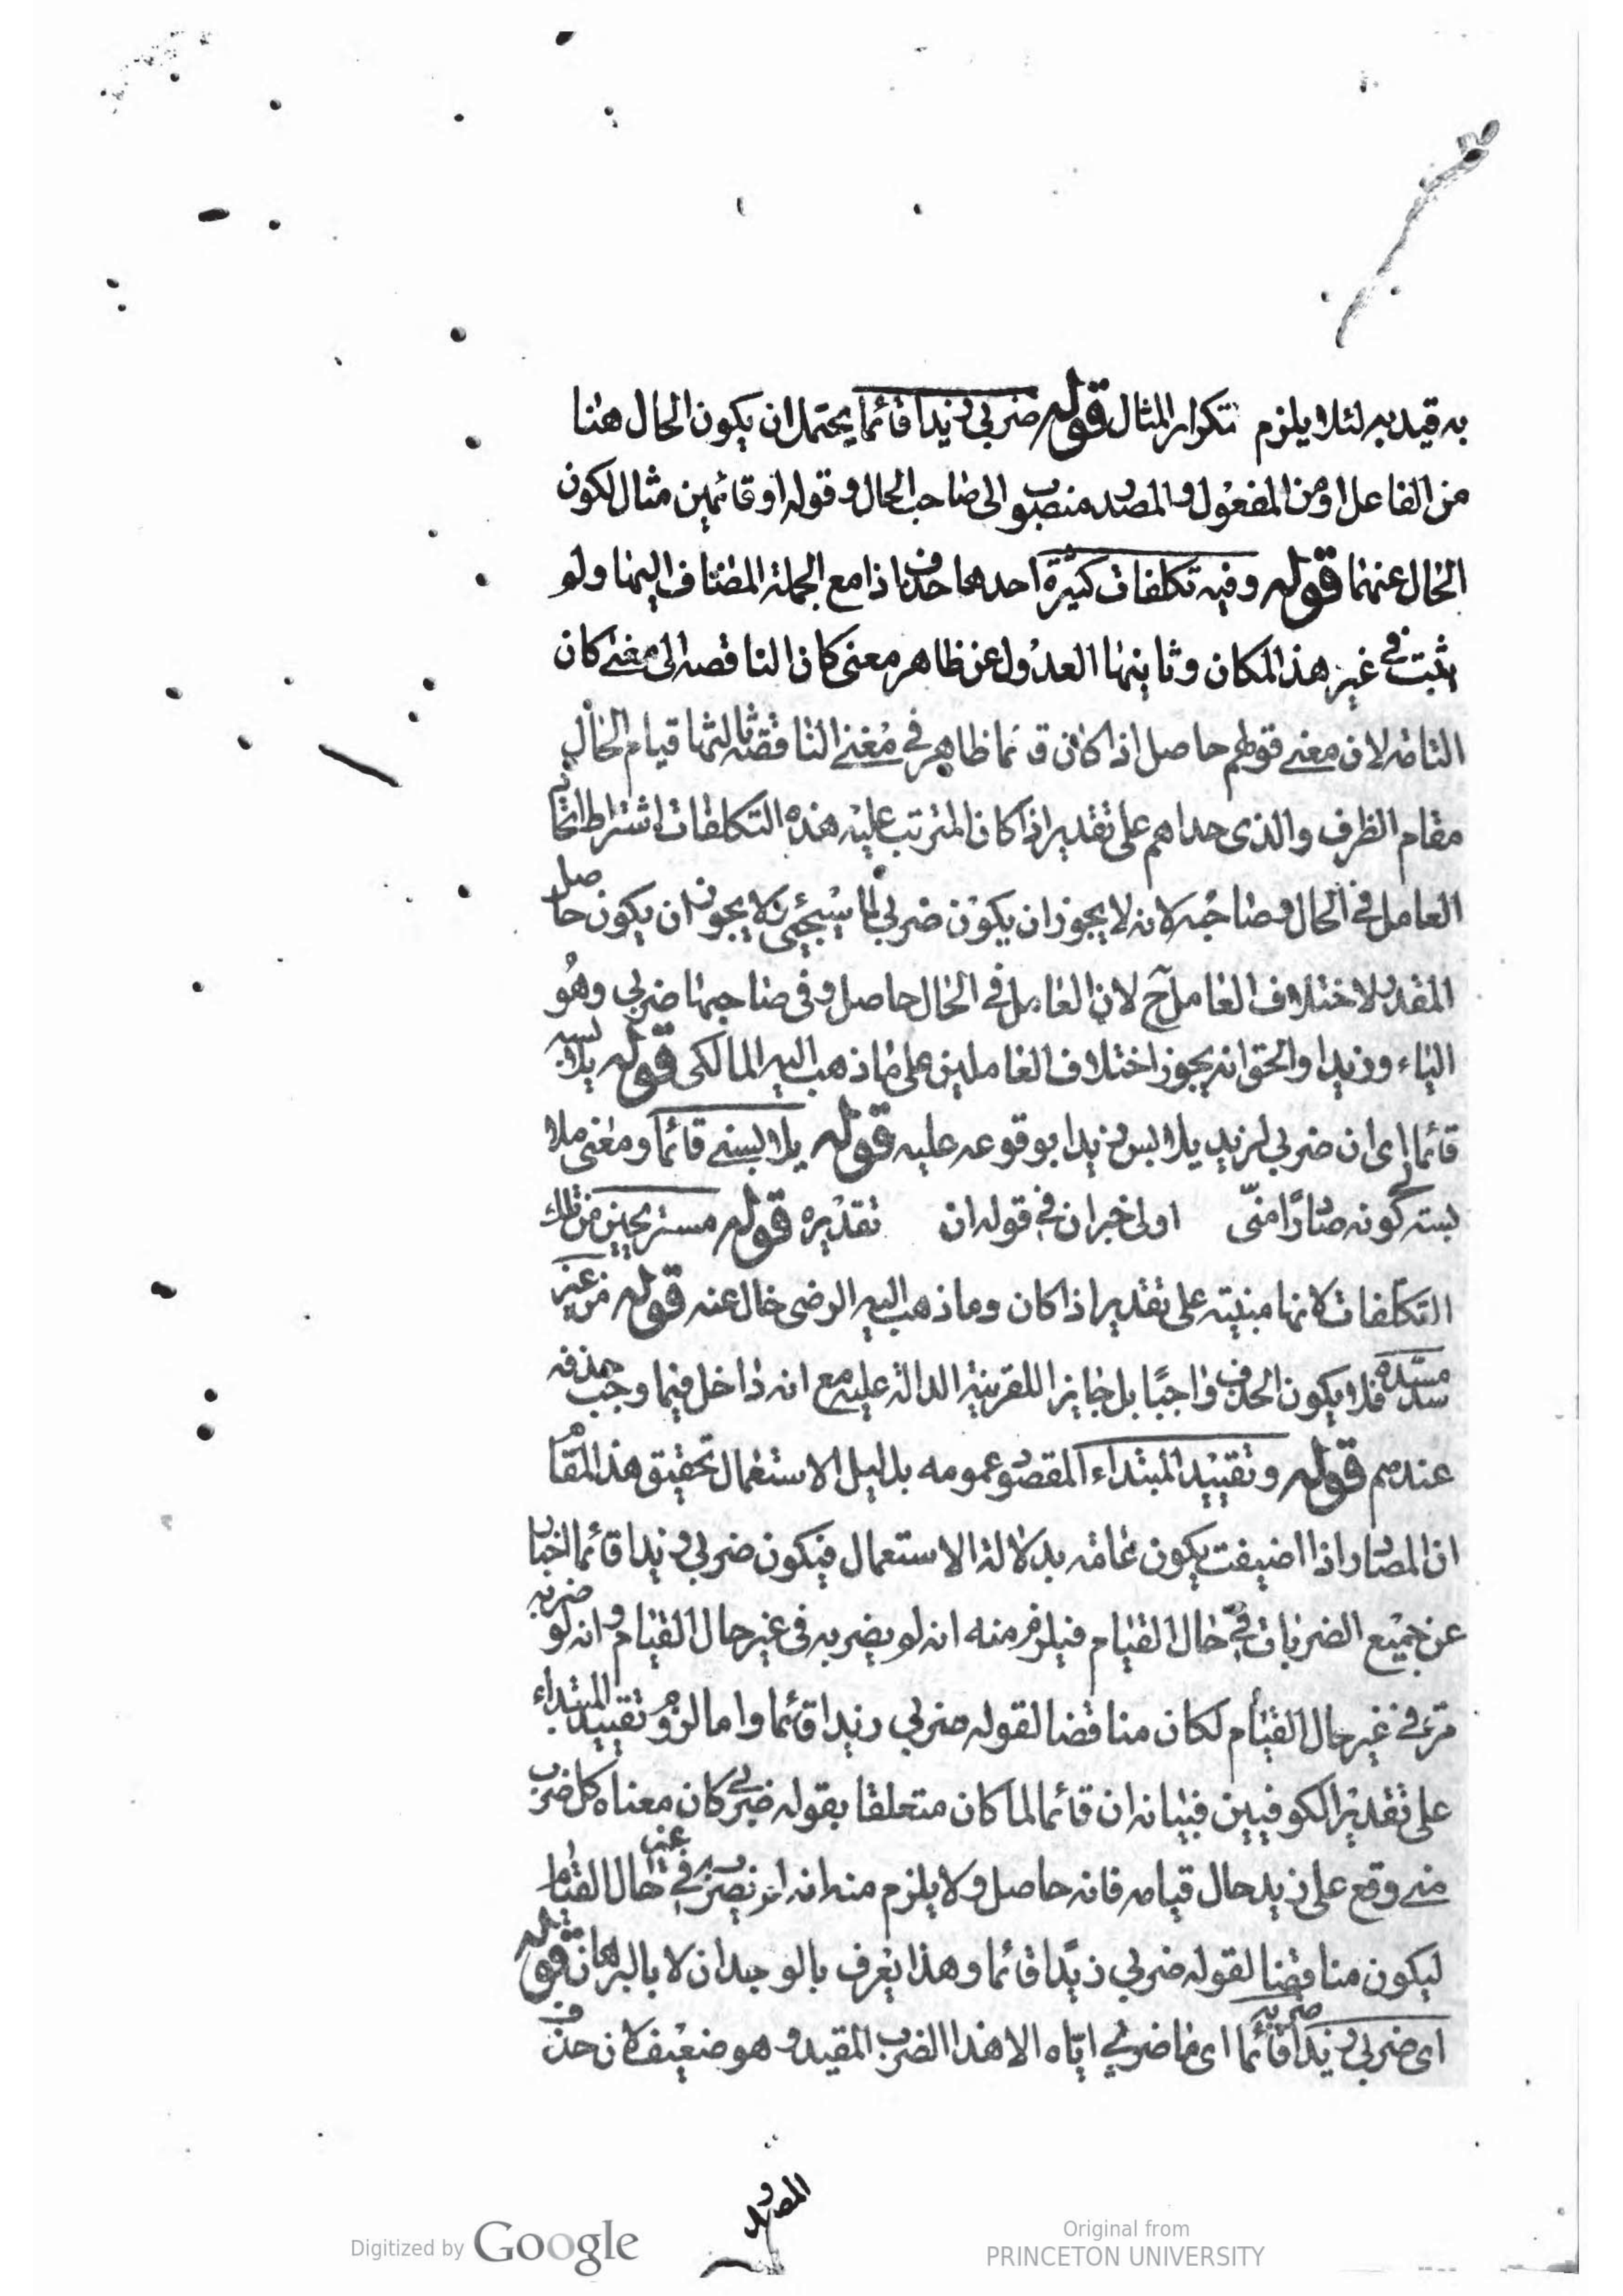 به قيد به لئلا يلزم تكرار المثال قوله ضربي زيدا قائما يحتمل ان يكون الحال هنا
من الفاعل او من المفعول والمصدر منصوب الى صاحب الحال وقوله او قائمين مثال لكون
الحال عنهما قوله وفيه تكلفات كثيرة احدها حذف اذا مع الجملة المضاف اليها ولو
يثبت في غير هذا المكان وثانيتها العدول عن ظاهر معنى كان الناقصه الى معنى كان
التامة لان معنى قولهم حاصل اذا كان قائما ظاهر في معنى الناقصة ثالثتها قيام الحال
مقام الظرف والذي حداهم على تقدير اذا كان المترتب عليه هذه التكلفات اشتراط اتحاد
العامل في الحال وصاحبه لانه لا يجوز ان يكون ضربي لما سيجئ ولا يجوز ان يكون حاصل
المقدر لاختلاف العامل ح لان العامل في الحال حاصل وفي صاحبها ضربي وهو
الياء وزيدا والحق انه يجوز اختلاف العاملين على ما ذهب اليه المالكى قوله يلابسه
قائما اى ان ضربي لزيد يلابس زيدا بوقوعه عليه قوله يلابسني قائما ومعنى ملا
بسته لي كونه صادرا منّى اولى خبر ان في قوله ان تقديره قوله مستريحين من تلك
التكلفات لانها مبنية على تقدير اذا كان وما ذهب اليه الرضى خال عنه قوله من غير
سدّ مسدّه فلا يكون الحذف واجبًا بل جايزا للقرينة الدالة عليه مع انه داخل فيما وجب حذفه
عندهم قوله وتقييد المبتداء المقصود عمومه بدليل الاستعمال تحقيق هذا المقام
ان المصادر اذا اضيفت يكون عامة بدلالة الاستعمال فيكون ضربي زيدا قائما اخبارا
عن جميع الضربات في حال القيام فيلزم منه انه لو يضربه في غير حال القيام وانه لو ضربه
مرة في غير حال القيام لكان مناقضا لقوله ضربي زيدا قائما واما لزوم تقييد المبتداء
على تقدير الكوفيين فبيانه ان قائما لما كان متعلقا بقوله ضربي كان معناه كل ضرب
منى وقع على زيد حال قيامه فانه حاصل ولا يلزم منه انه لم يضرب في غير حال القيام
ليكون مناقضا لقوله ضربي زيدًا قائما وهذا يعرف بالوجدان لا بالبرهان قوله
اى ضربي زيدا قائما اى ما ضربي اياه الا هذا الضرب المقيد وهو ضعيف لان حذف
المصدر
Digitized by Google
Original from
PRINCETON UNIVERSITY